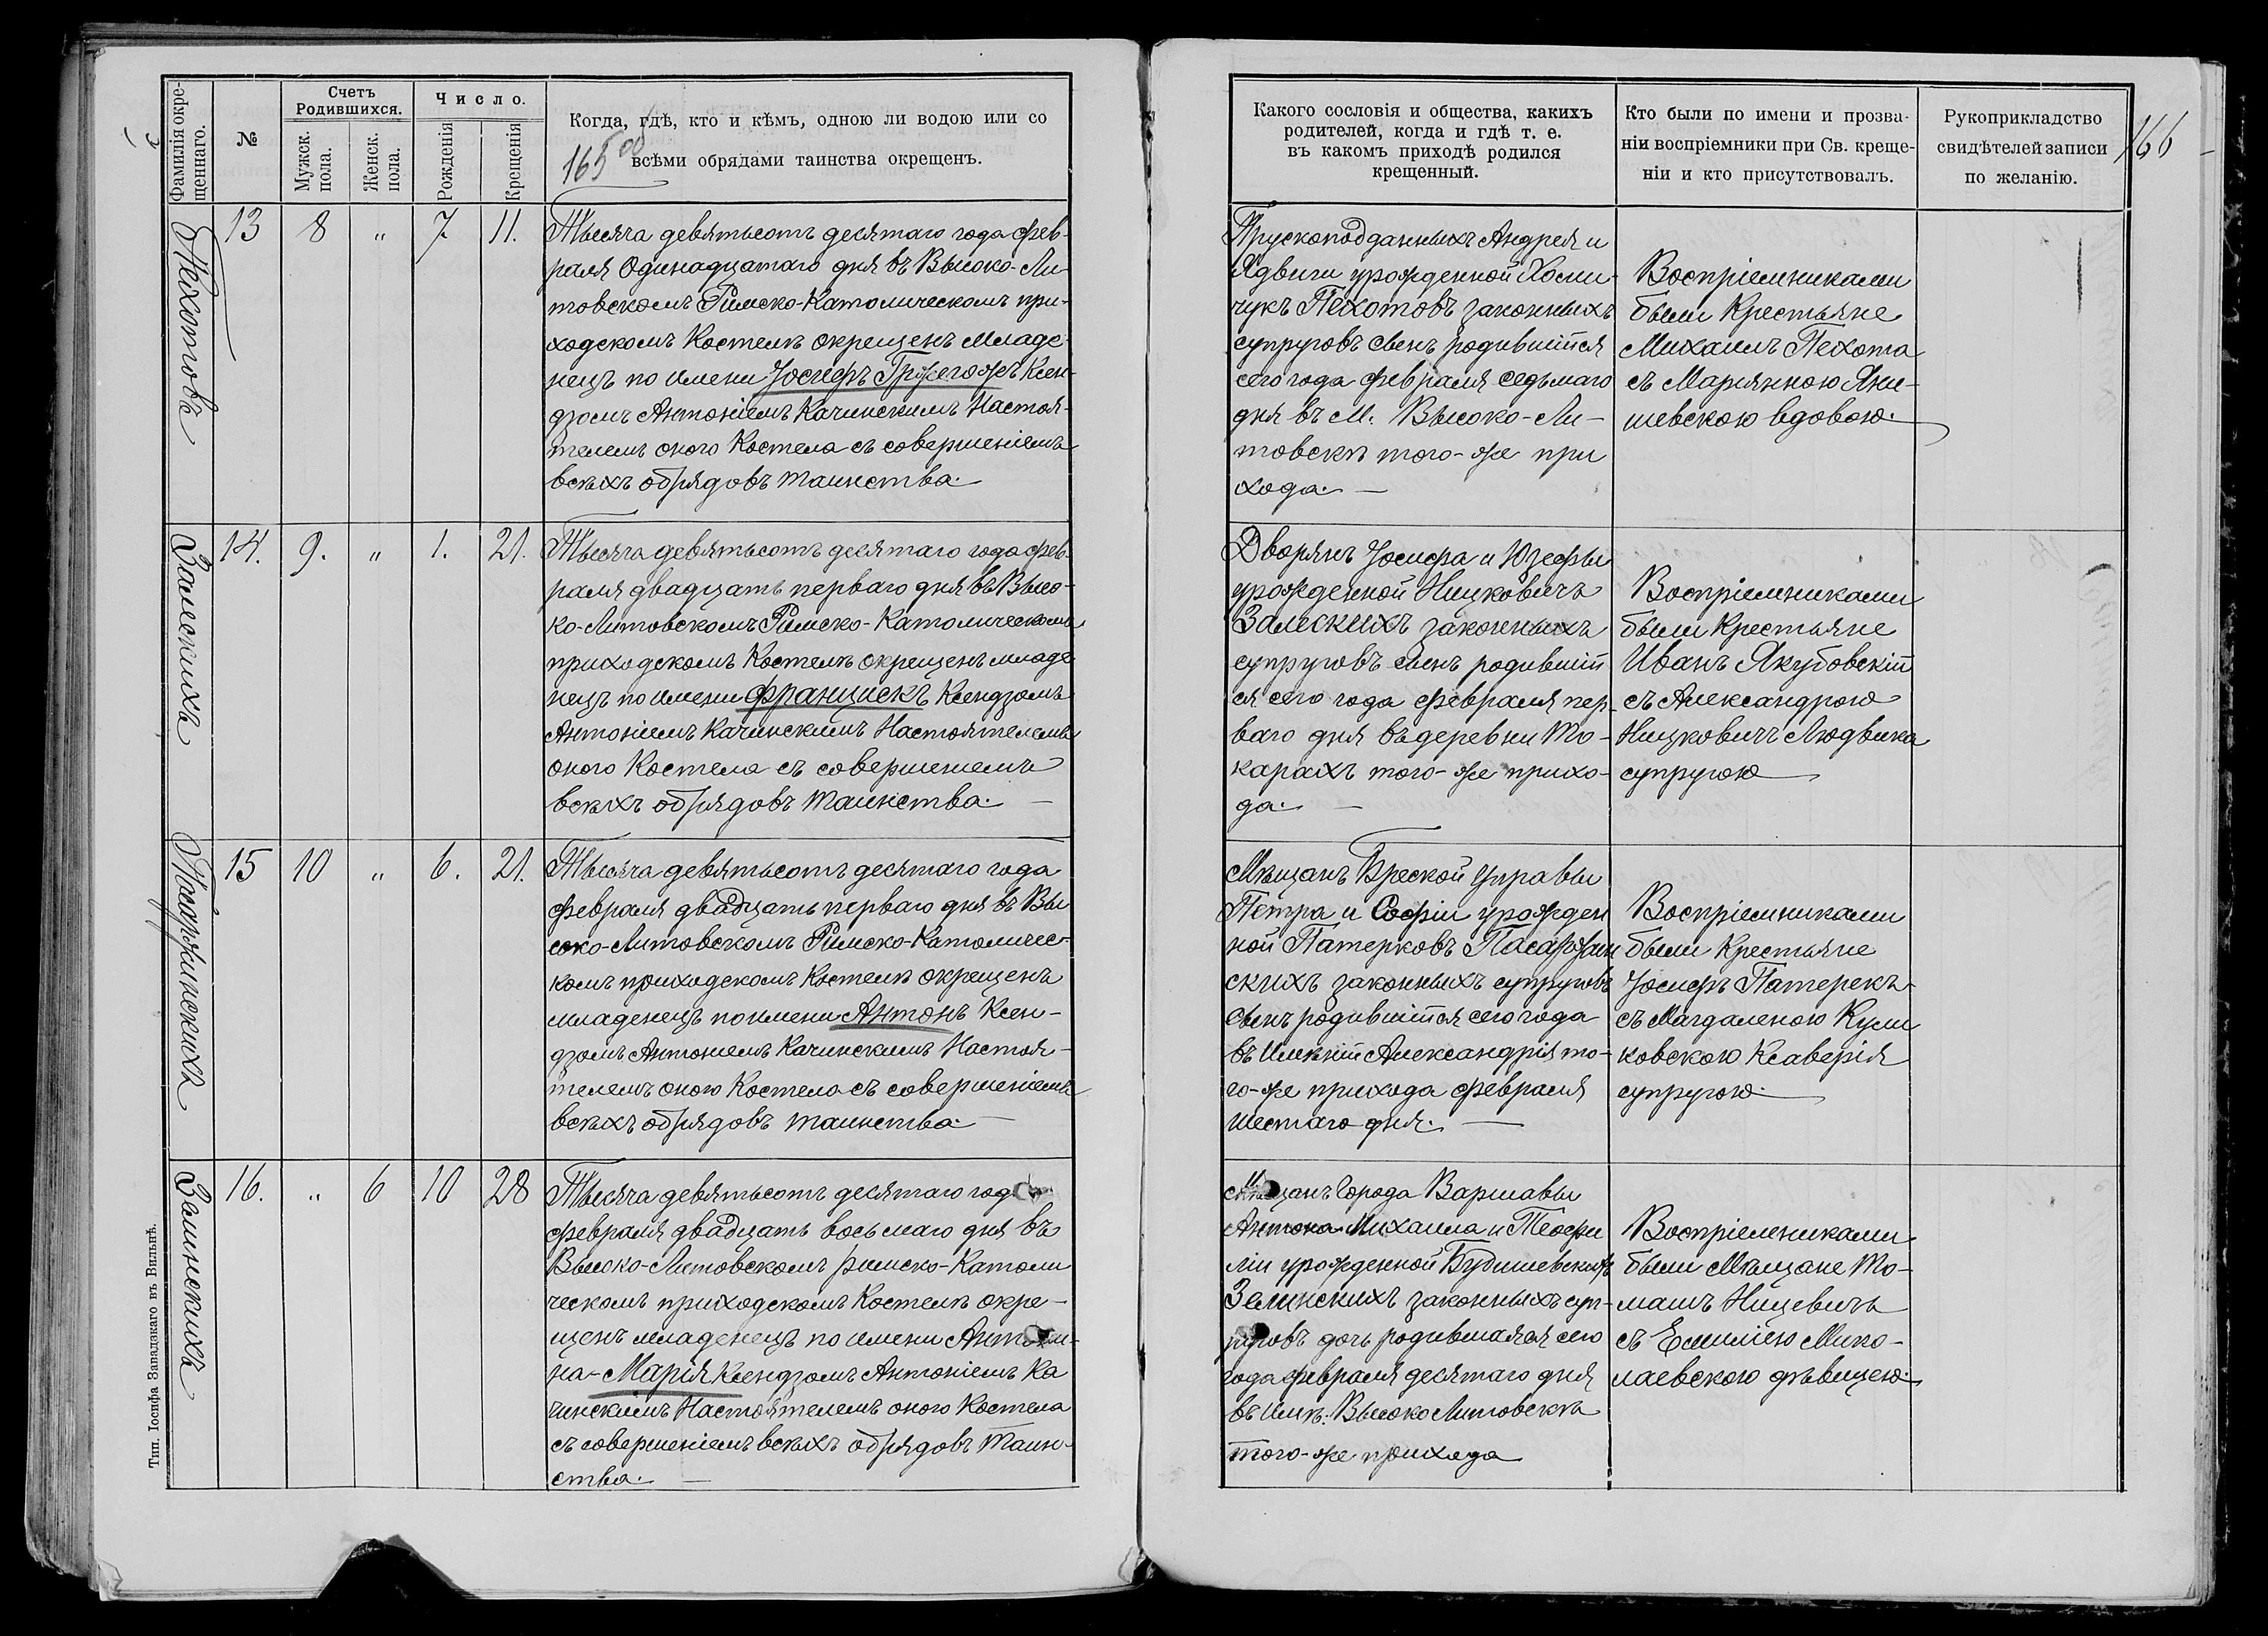 Фамилія окре-
щеннаго.
№
Счетъ
Родившихся.
Мужск.
пола.
Женск.
пола.
Число.
Рожденія
Крещенія
Когда, гдѣ, кто и кѣмъ, одною ли водою или со
всѣми обрядами таинства окрещенъ.
165 об
Пехотовъ
13
8
"
7
11.
Тысяча девятьсотъ десятаго года фев-
раля Одинадцатаго дня въ Высоко-Ли
товскомъ Римско-Католическомъ при-
ходскомъ Костелѣ окрещенъ младе-
нецъ по имени Іосифъ Гржегоржъ Ксен-
дзомъ Антоніемъ Качинскимъ Настоя-
телемъ оного Костела съ совершеніемъ
всѣхъ обрядовъ таинства.
Залескихъ
14.
9.
"
1.
21.
Тысяча девятьсотъ десятаго года фев-
раля двадцать перваго дня въ Высо-
ко-Литовскомъ Римско-Католическомъ
приходскомъ Костелѣ окрещенъ младе-
нецъ по имени Францискъ Ксендзомъ
Антоніемъ Качинскимъ Настоятелемъ
оного Костела съ совершеніемъ
всѣхъ обрядовъ таинства.
15
10
"
6.
21.
Тысяча девятьсотъ десятаго года
февраля двадцать перваго дня въ Вы
соко-Литовскомъ Римско-Католичес-
комъ приходскомъ Костелѣ окрещенъ
младенецъ по имени Антонъ Ксен-
дзомъ Антоніемъ Качинскимъ Настоя-
телемъ оного Костела съ совершеніемъ
всѣхъ обрядовъ таинства.
Зелинскихъ
16.
"
6
10
28
Тысяча девятьсотъ десятаго года
февраля двадцать восьмаго дня въ
Высоко-Литовскомъ римско-Католи
ческомъ приходскомъ Костелѣ окре-
щенъ младенецъ по имени Антони-
на-Марія Ксендзомъ Антоніемъ Ка
чинскимъ Настоятелемъ оного Костела
съ совершеніемъ всѣхъ обрядовъ Таин-
ства.
Тип. Іосифа Завадзкаго въ Вильнѣ.
Какого сословія и общества, какихъ
родителей, когда и гдѣ т. е.
въ какомъ приходѣ родился
крещенный.
Кто были по имени и прозва-
ніи воспріемники при Св. креще-
ніи и кто присутствовалъ.
Рукоприкладство
свидѣтелей записи
по желанію.
166
Прускоподданныхъ Андрея и
Ядвиги урожденной Хоми-
чукъ Пехотовъ законныхъ
супруговъ сынъ родившійся
сего года февраля седьмаго
дня въ М. Высоко-Ли-
товскѣ того-же при
хода.
Воспріемниками
были Крестьяне
Михаилъ Пехота
съ Маріянною Яни-
шевскою вдовою.
Дворянъ Іосифа и Юзефы
урожденной Ницковичъ
Залескихъ законныхъ
супруговъ сынъ родившій
ся сего года февраля пер-
ваго дня въ деревни То-
карахъ того-же прихо-
да.
Воспріемниками
были Крестьяне
Иванъ Якубовскій
съ Александрою
Ницковичъ Людвика
супругою
Мѣщанъ Бреской Управы
Петра и Софіи урожден
ной Патерковъ
скихъ законныхъ супруговъ
Сынъ родившійся сего года
въ Имѣніи Александрія то-
го-же прихода февраля
шестаго дня.
Воспріемниками
были Крестьяне
Іосифъ Патерекъ
съ Магдаленою Кули
ковскою Ксаверія
супругою.
Мѣщанъ Города Варшавы
Антона-Михаила и Теофи
ліи урожденной
Зелинскихъ законныхъ суп-
руговъ дочь родившаяся сего
года февраля десятаго дня
въ Имѣ: Высоко Литовскѣ
того-же прихода
Воспріемниками
были Мѣщане То-
машъ Ницевичъ
съ Емиліею Мико-
лаевскою дѣвицею.